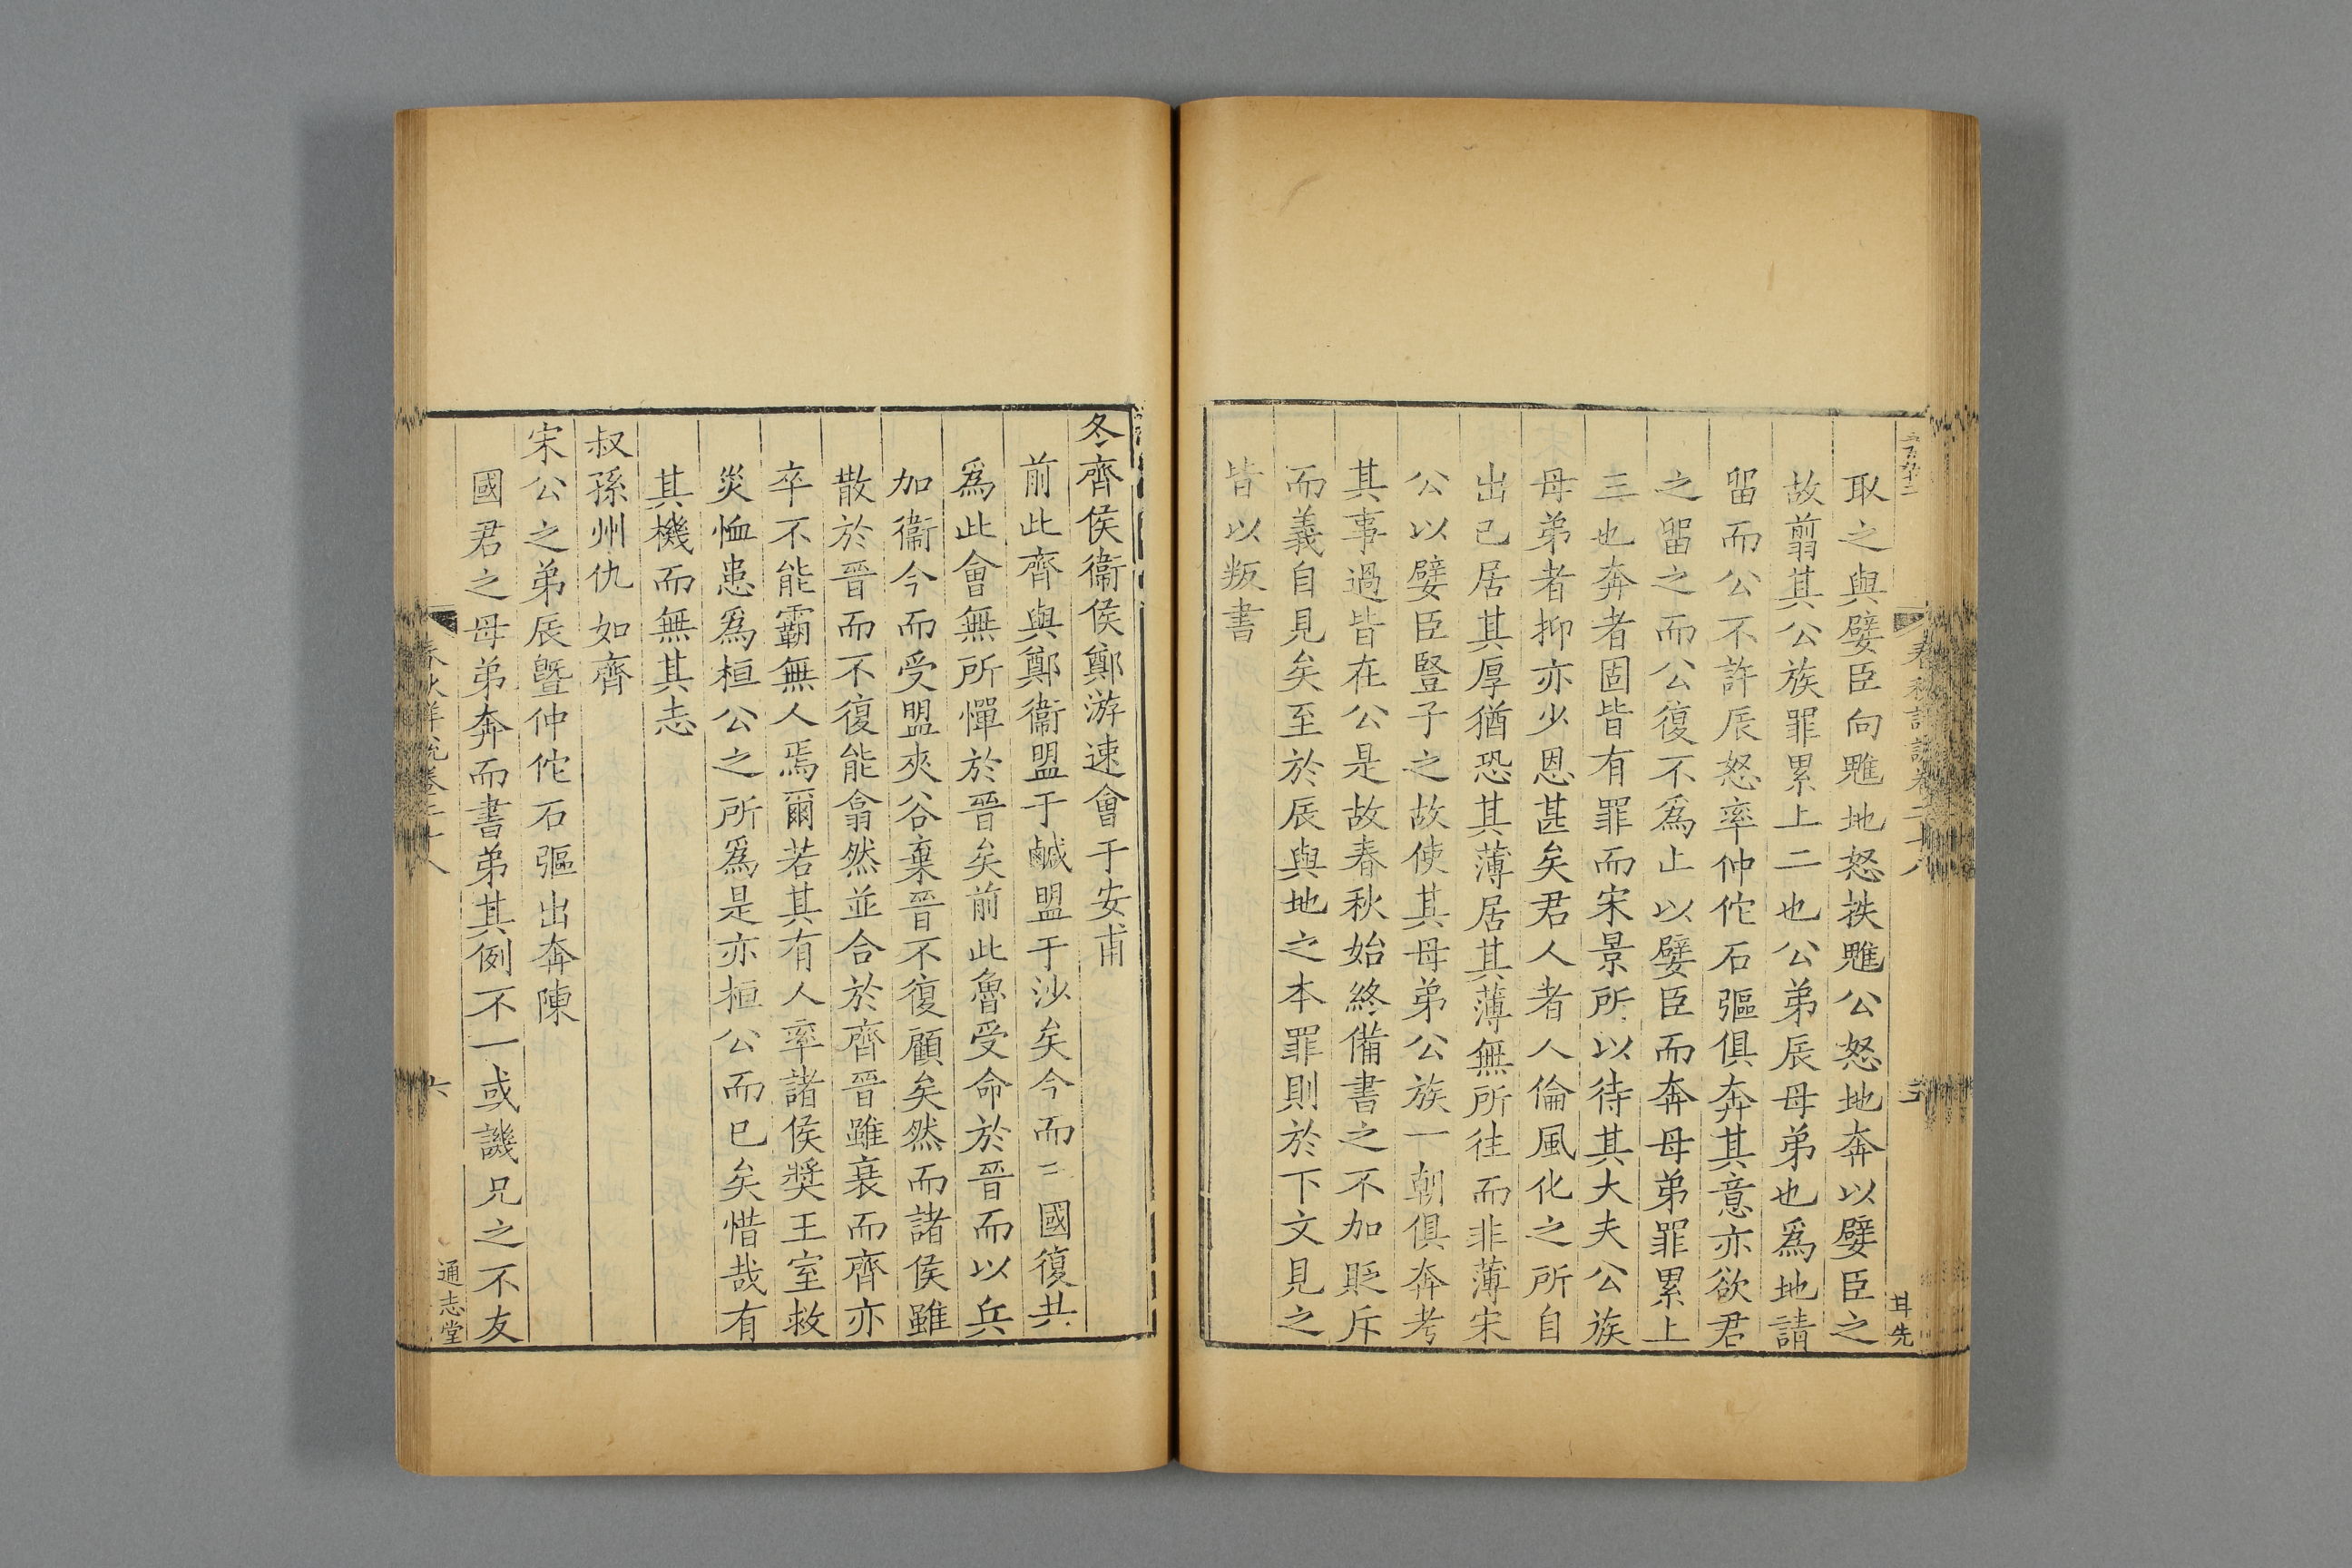 取之與嬖臣向魋地怒抶魋公怒地奔以嬖臣之
故翦其公族罪累上二也公弟辰母弟也爲地請
留而公不許辰怒率仲佗石彄俱奔其意亦欲君
之留之而公復不爲止以嬖臣而奔母弟罪累上
三也奔者固皆有罪而宋景所以待其大夫公族
母弟者抑亦少恩甚矣君人者人倫風化之所自
出已居其厚猶恐其薄居其薄無所往而非薄宋
公以嬖臣豎子之故使其母弟公族一朝俱奔考
其事過皆在公是故春秋始終備書之不加貶斥
而義自見矣至於辰與地之本罪則於下文見之
皆以叛書
冬齊侯衞侯鄭游速會于安甫
前此齊與鄭衞盟于鹹盟于沙矣今而二國復共
爲此會無所憚於晉矣前此魯受命於晉而以兵
加衞今而受盟夾谷棄晉不復顧矣然而諸侯雖
散於晉而不復能翕然並合於齊晉雖衰而齊亦
卒不能霸無人焉爾若其有人率諸侯奬王室救
災恤患爲桓公之所爲是亦桓公而已矣惜哉有
其機而無其志
叔孫州仇如齊
宋公之弟辰曁仲佗石彄出奔陳
國君之母弟奔而書弟其例不一或譏兄之不友
春秋詳說卷二十八
六
通志堂